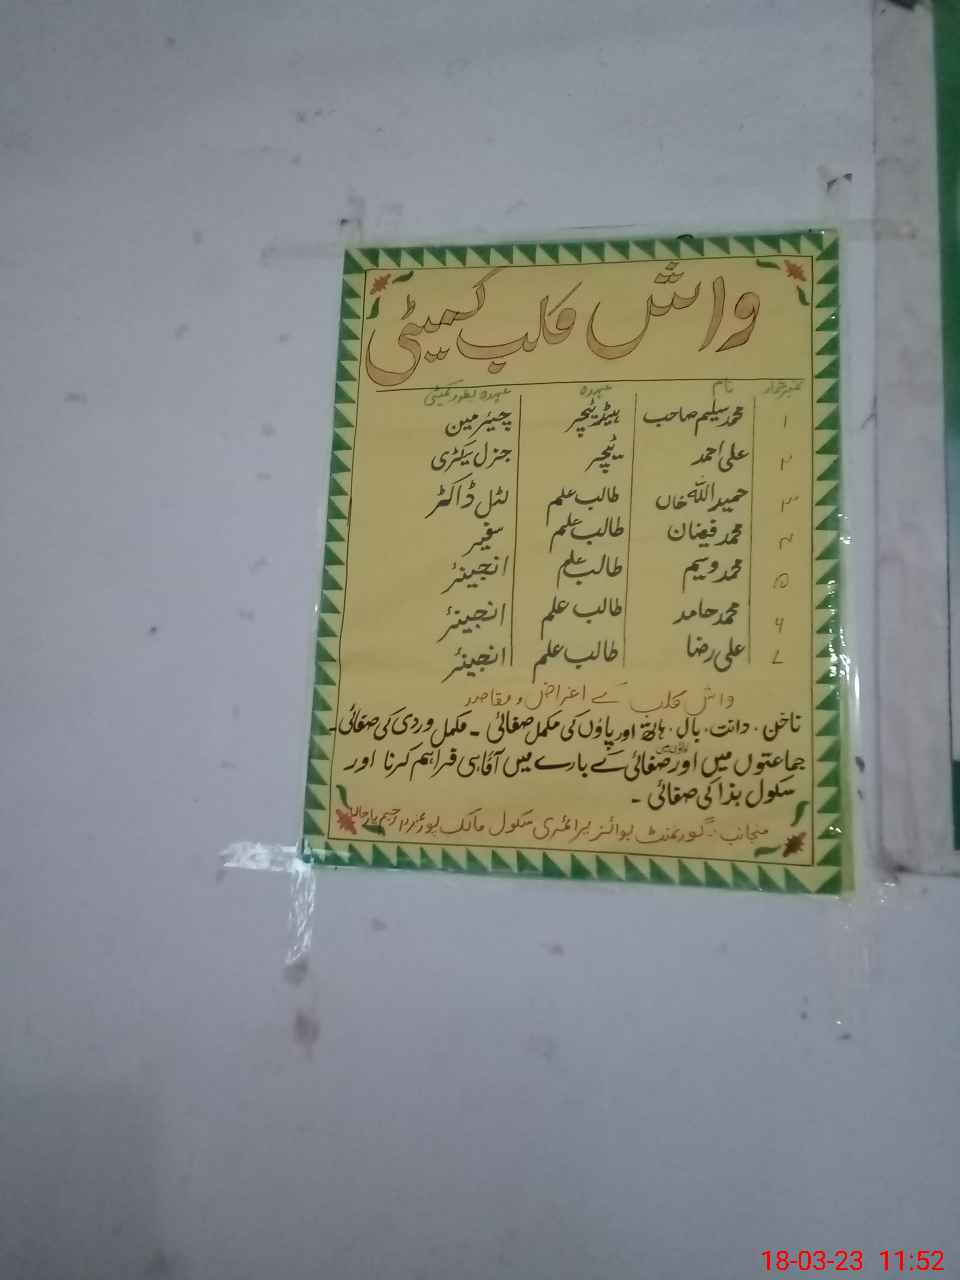 واش کلب کمیٹی
نمبر شمار نام عہدہ عہدہ بطور کمیٹی
۱ محمد سلیم صاحب ہیڈ ٹیچر چیئرمین
۲ علی احمد ٹیچر جنرل سیکٹری
۳ حمید اللہ خاں طالب علم لٹل ڈاکٹر
۴ محمد فیضان طالب علم سفیر
۵ محمد وسیم طالب علم انجینئر
۶ محمد حامد طالب علم انجینئر
۷ علی رضا طالب علم انجینئر
واش کلب کے اغراض و مقاصد
ناخن ۔ دانت ۔ بال ۔ ہاتھ اور پاؤں کی مکمل صفائی ۔ مکمل وردی کی صفائی ۔
جماعتوں میں اور صفائی کے بارے میں آگاہی فراہم کرنا اور
سکول ہذا کی صفائی ۔
منجانب:۔ گورنمنٹ بوائز پرائمری سکول مالک پور رحیم یار خان
18-03-23 11:52